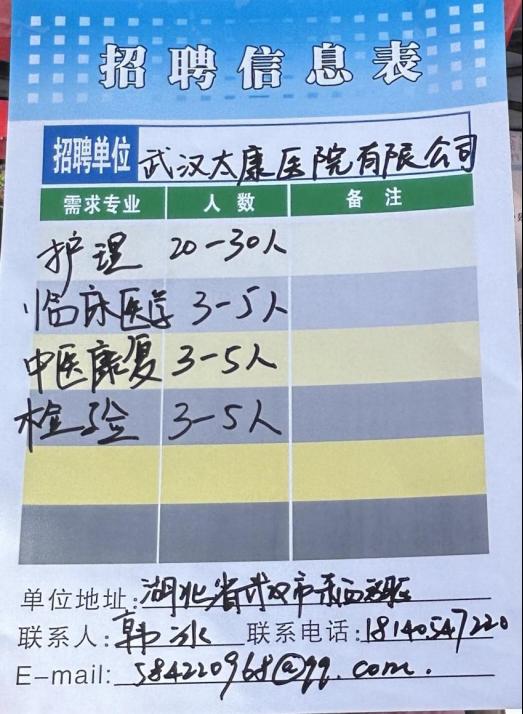 招聘信息表
招聘单位 武汉太康医院有限公司
需求专业 人数 备注
护理 20-30人
临床医学 3-5人
中医康复 3-5人
检验 3-5人
单位地址: 湖北省武汉市
联系人: 韩冰 联系电话: 18140547220
E-mail: 584220968@qq.com.